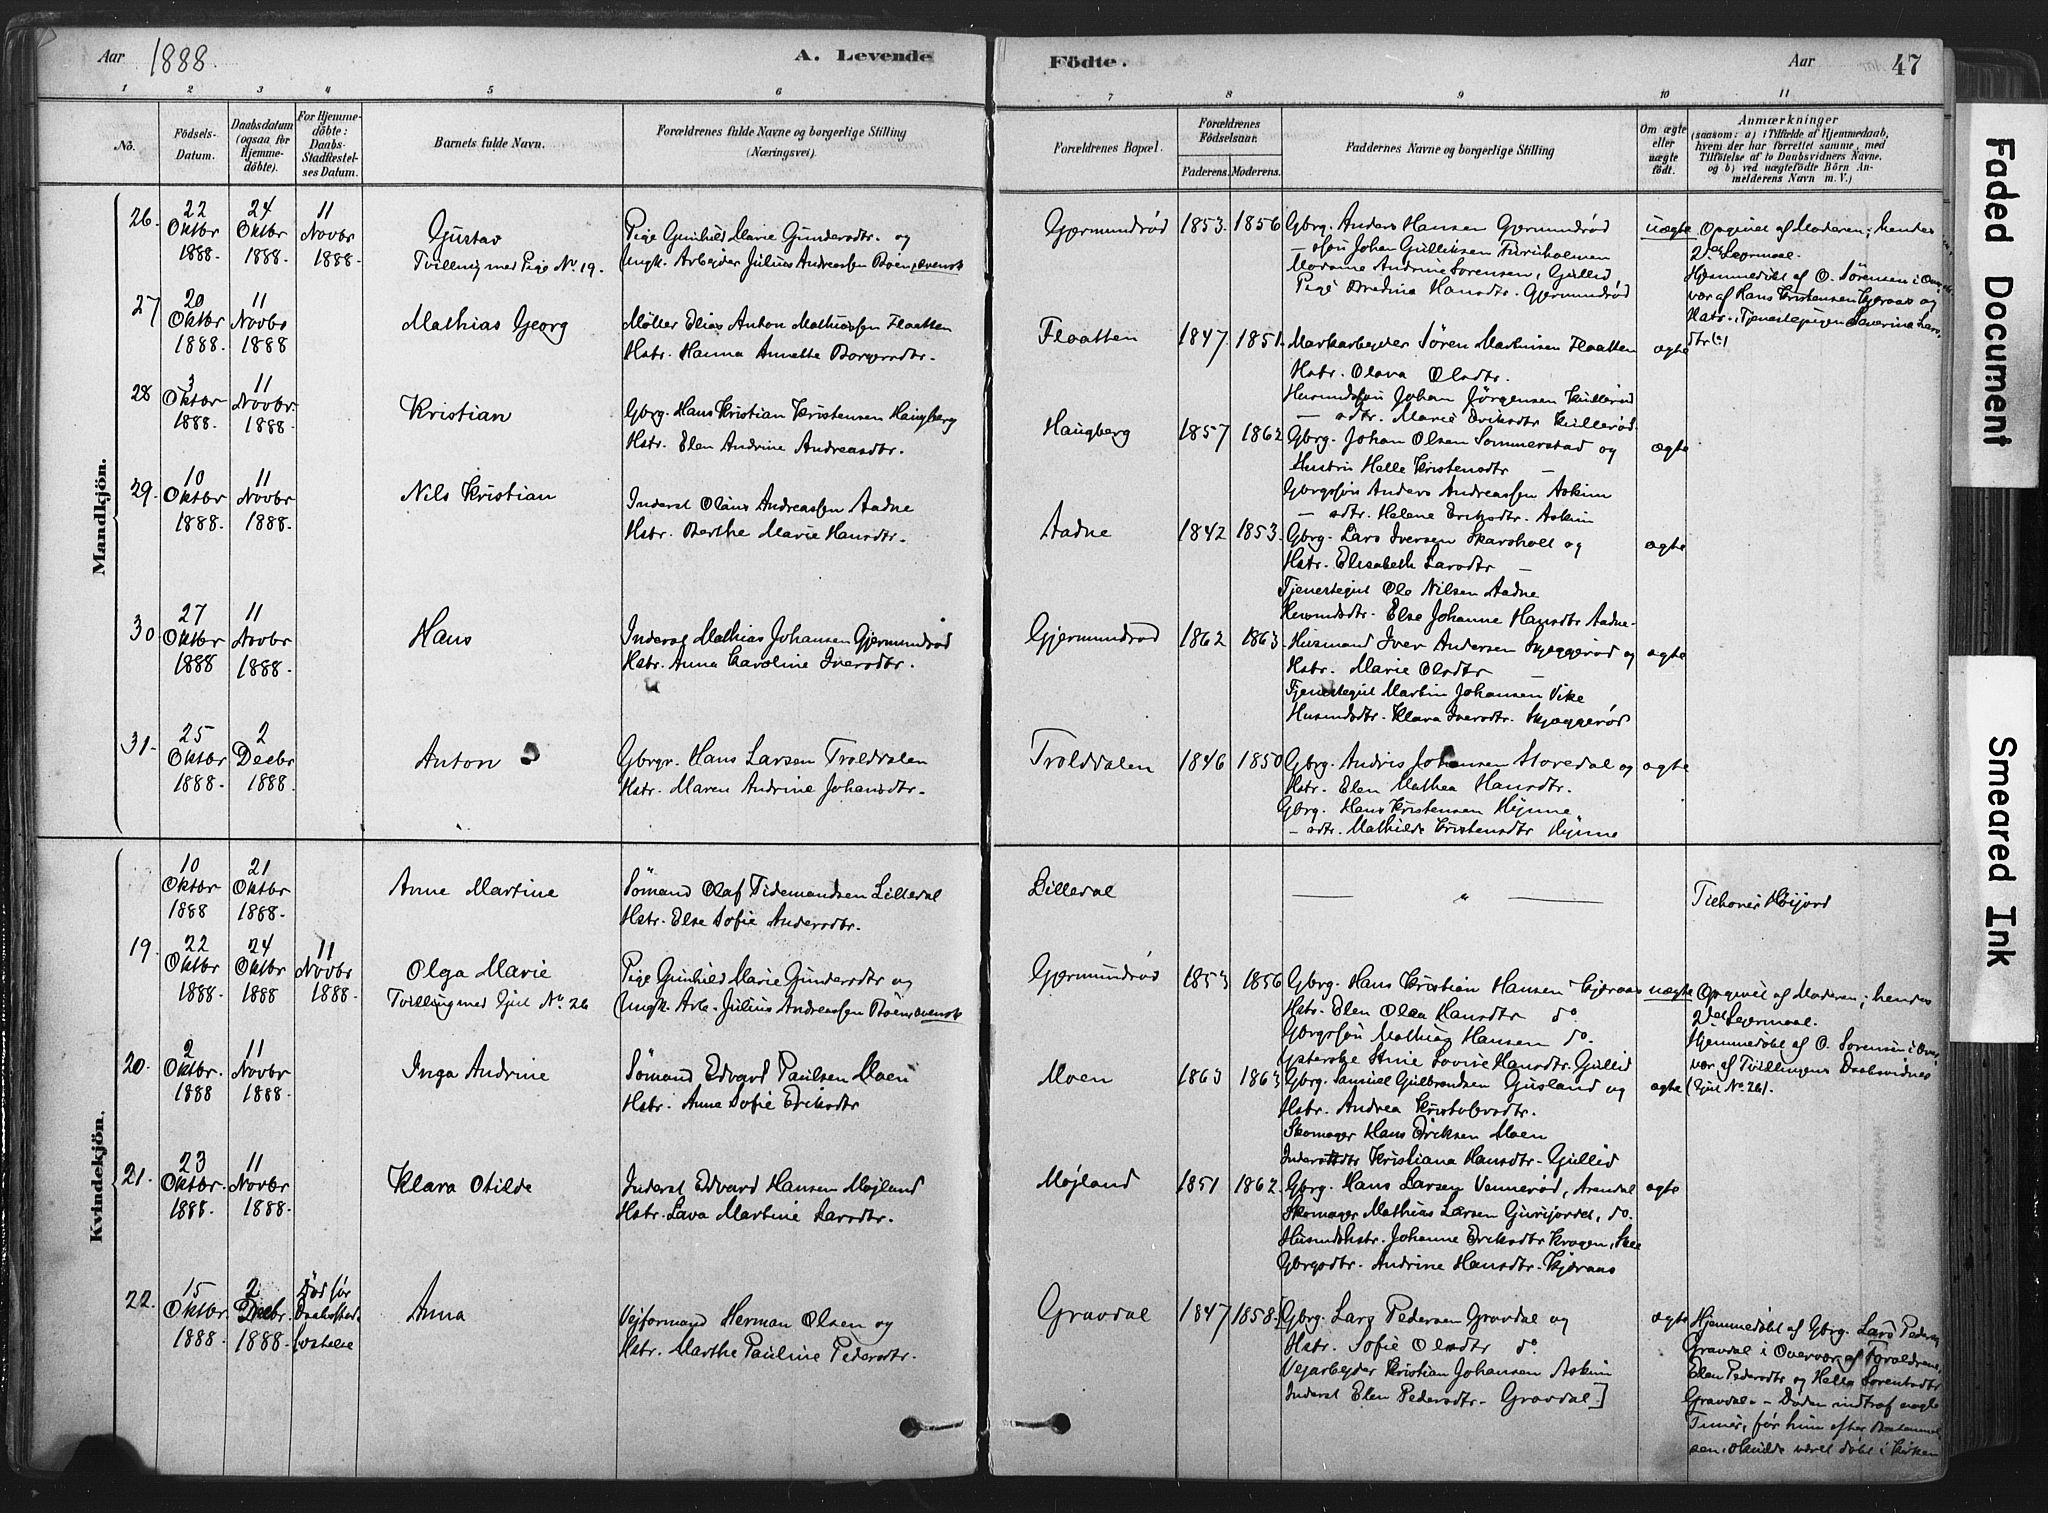 Aar 1888.
A. Levende Födte.
Aar 47
1 2 3 4 5 6 7 8 9 10 11
No.
Födsels-Datum.
Daabsdatum (ogsaa for Hjemmedöbte).
For Hjemmedöbte: Daabs-Stadfæstelses Datum.
Barnets fulde Navn.
Forældrenes fulde Navne og borgerlige Stilling (Næringsvei).
Forældrenes Bopæl.
Forældrenes Födselsaar.
Faderens. Moderens.
Faddernes Navne og borgerlige Stilling
Om ægte eller uægte født.
Anmærkninger
(saasom: a) i Tilfælde af Hjemmedaab, hvem der har forrettet samme, med Tilföielse af to Daabsvidners Navne, og b) ved uægtefödte Börn Anmelderens Navn m. V.)
Mandkjön.
26. 22 Oktbr 1888. 24 Oktbr 1888. 11 Novbr 1888.
Gustav
Tvilling med Pige No. 19.
Pige Gunhild Marie Gundersdtr. og
Ungk. Arbejder Julius Andreassen Roen, svensk
Gjermundrød 1853. 1856
Gbrg. Anders Hansen Gjermundrød
— søn Johan Gulliksen
Madame Andrine Sørensen, Gullid
Pige Bredine Hansdtr. Gjermundrød
uægte
Opgivet af Moderen; hendes
2det Lejermaal.
Hjemmedøbt af O. Sørensen i Over-
vær af Hans Kristensen Kjæraas og
Hstr., Tjenestepigen Severine Lars-
dtr
27 20 Oktbr 1888. 11 Novbr 1888
Mathias Georg
Møller Elias Anton Mathiassen Flaatten
Hstr. Hanna Annette Borgersdtr.
Flaatten 1847. 1851.
Markarbejder Søren Mathisen Flaatten
Hstr. Olava Olsdtr.
Husmdssøn Johan Jørgensen Kullerød
— sdtr. Marie Eriksdtr Kullerød.
ægte
28 3 Oktbr 1888. 11 Novbr. 1888.
Kristian
Gbrg. Hans Kristian Kristensen Haugberg
Hstr. Elen Andrine Andreasdtr.
Haugberg 1857 1862
Gbrg. Johan Olsen Sommerstad og
Hustru Helle Kristensdtr —
Gbrgssøn Anders Andreassen Askim
— sdtr. Helene Eriksdtr. Askim
ægte
29. 10 Oktbr 1888. 11 Novbr 1888.
Nils Kristian
Inderst Olaus Andreassen Aadne
Hstr. Berthe Marie Hansdtr.
Aadne 1842 1853.
Gbrg. Lars Iversen Skarsholt og
Hstr. Elisabeth Larsdtr —
Tjenestegut Ole Nilsen Aadne
Husmdsdtr. Else Johanne Hansdtr Aadne.
ægte
30 27 Oktbr 1888 11 Novbr 1888.
Hans
Inderst Mathias Johansen Gjermundrød
Hstr. Anna Karoline Iversdtr.
Gjermundrød 1862 1863.
Husmand Iver Andersen Skjæggerød og
Hstr. Marie Olsdtr —
Tjenestegut Martin Johansen Vike
Husmdsdtr. Klara Iversdtr. Skjæggerød
ægte
31. 25 Oktbr 1888. 2 Decbr 1888.
Anton
Gbrgr. Hans Larsen Troldvalen
Hstr. Maren Andrine Johansdtr.
Troldvalen 1846 1850
Gbrg. Andris Johansen Storedal og
Hstr. Elen Mathea Hansdtr.
Gbrg. Hans Kristensen Hynne
— sdtr. Mathilde Kristensdtr Hynne
ægte
Kvindekjön.
10 Oktbr 1888 21 Oktbr 1888.
Anne Martine
Sømand Olaf Tidemandsen Lilledal
Hstr. Else Sofie Andersdtr.
Lilledal
— " —
Tilhører Høijord
19. 22 Oktbr 1888. 24 Oktbr 1888 11 Novbr 1888.
Olga Marie
Tvilling med Gut No. 26
Pige Gunhild Marie Gundersdtr og
Ungk. Arb. Julius Andreassen Roen, svensk
Gjermundrød 1853 1856
Gbrg. Hans Kristian Hansen Kjæraas
Hstr. Elen Olea Hansdtr do.
Gbrgssøn Mathias Hansen do.
Stine Lovise Hansdtr. Gullid
uægte
Opgivet af Moderen; hendes
2det Lejermaal.
Hjemmedøbt af O. Sørensen i Over-
vær af Tvillingens Daabsvidner
(Gut No 26).
20. 2 Oktbr. 1888 11 Novbr 1888.
Inga Andrine
Sømand Edvard Paulsen Moen
Hstr. Anne Sofie Eriksdtr
Moen 1863 1863
Gbrg. Samuel Gulbrandsen Gusland og
Hstr. Andrea Kristofersdtr.
Skomager Hans Eriksen Moen
Inderstdtr Kristiana Hansdtr. Gullid
ægte
21. 23 Oktbr. 1888. 11 Novbr 1888.
Klara Otilde
Inderst Edvard Hansen Møjland
Hstr. Lava Martine Larsdtr.
Møjland 1851 1862.
Gbrg. Hans Larsen Vennerød, Arendal
Skomager Mathias Larsen Gurijordet, do.
Husmdshstr. Johanne Eriksdtr Kragen, Skee
Gbrgsdtr. Andrine Hansdtr. Kjæraas
ægte
22. 15 Oktbr. 1888. 2 Decbr. 1888. Død før Daabsstad-fæstelse
Anna
Vejformand Herman Olsen og
Hstr. Marthe Pauline Pedersdtr.
Gravdal 1847 1858.
[Gbrg. Lars Pedersen Gravdal og
Hstr. Sofie Olsdtr do
Vejarbejder Kristian Johansen Askim
Inderst Elen Pedersdtr. Gravdal]
ægte
Hjemmedøbt af Gbrg. Lars Peders.
Gravdal i Overvær af Forældrene,
Elen Pedersdtr og Helle Sørensdtr
Gravdal. — Døden indtraf nogle
Timer, før hun efter Bestemmel-
sen, skulde været døbt i Kirken
Faded Document
Smeared Ink